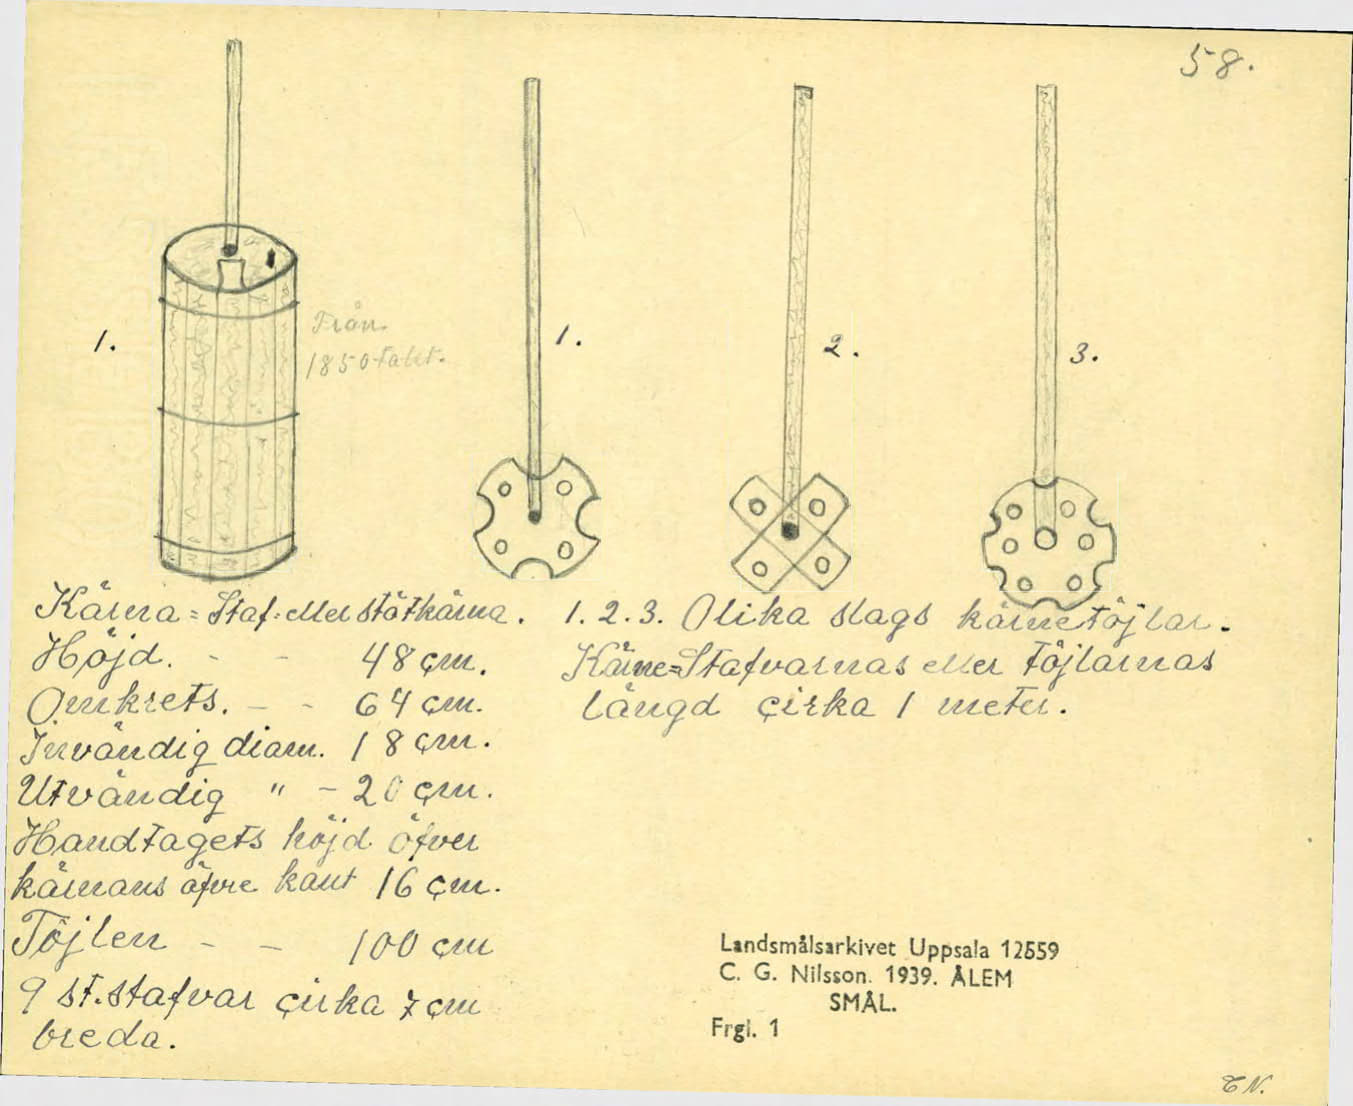 58.
1.
Från
1850-talet.
1.
2.
3.
Kärna = Staf- eller stötkärna.
Höjd. - - 48 cm.
Omkrets. - - 64 cm.
Invändig diam. 18 cm.
Utvändig " - 20 cm.
Handtagets höjd öfver
kärnans öfre kant 16 cm.
Töjlen - - 100 cm
9 st. stafvar cirka 7 cm
breda.
1. 2. 3. Olika slags kärnetöjlar.
Kärne=Stafvarnas eller töjlarnas
längd cirka 1 meter.
Landsmålsarkivet Uppsala 12559
C. G. Nilsson. 1939. ÅLEM
SMÅL.
Frgl. 1